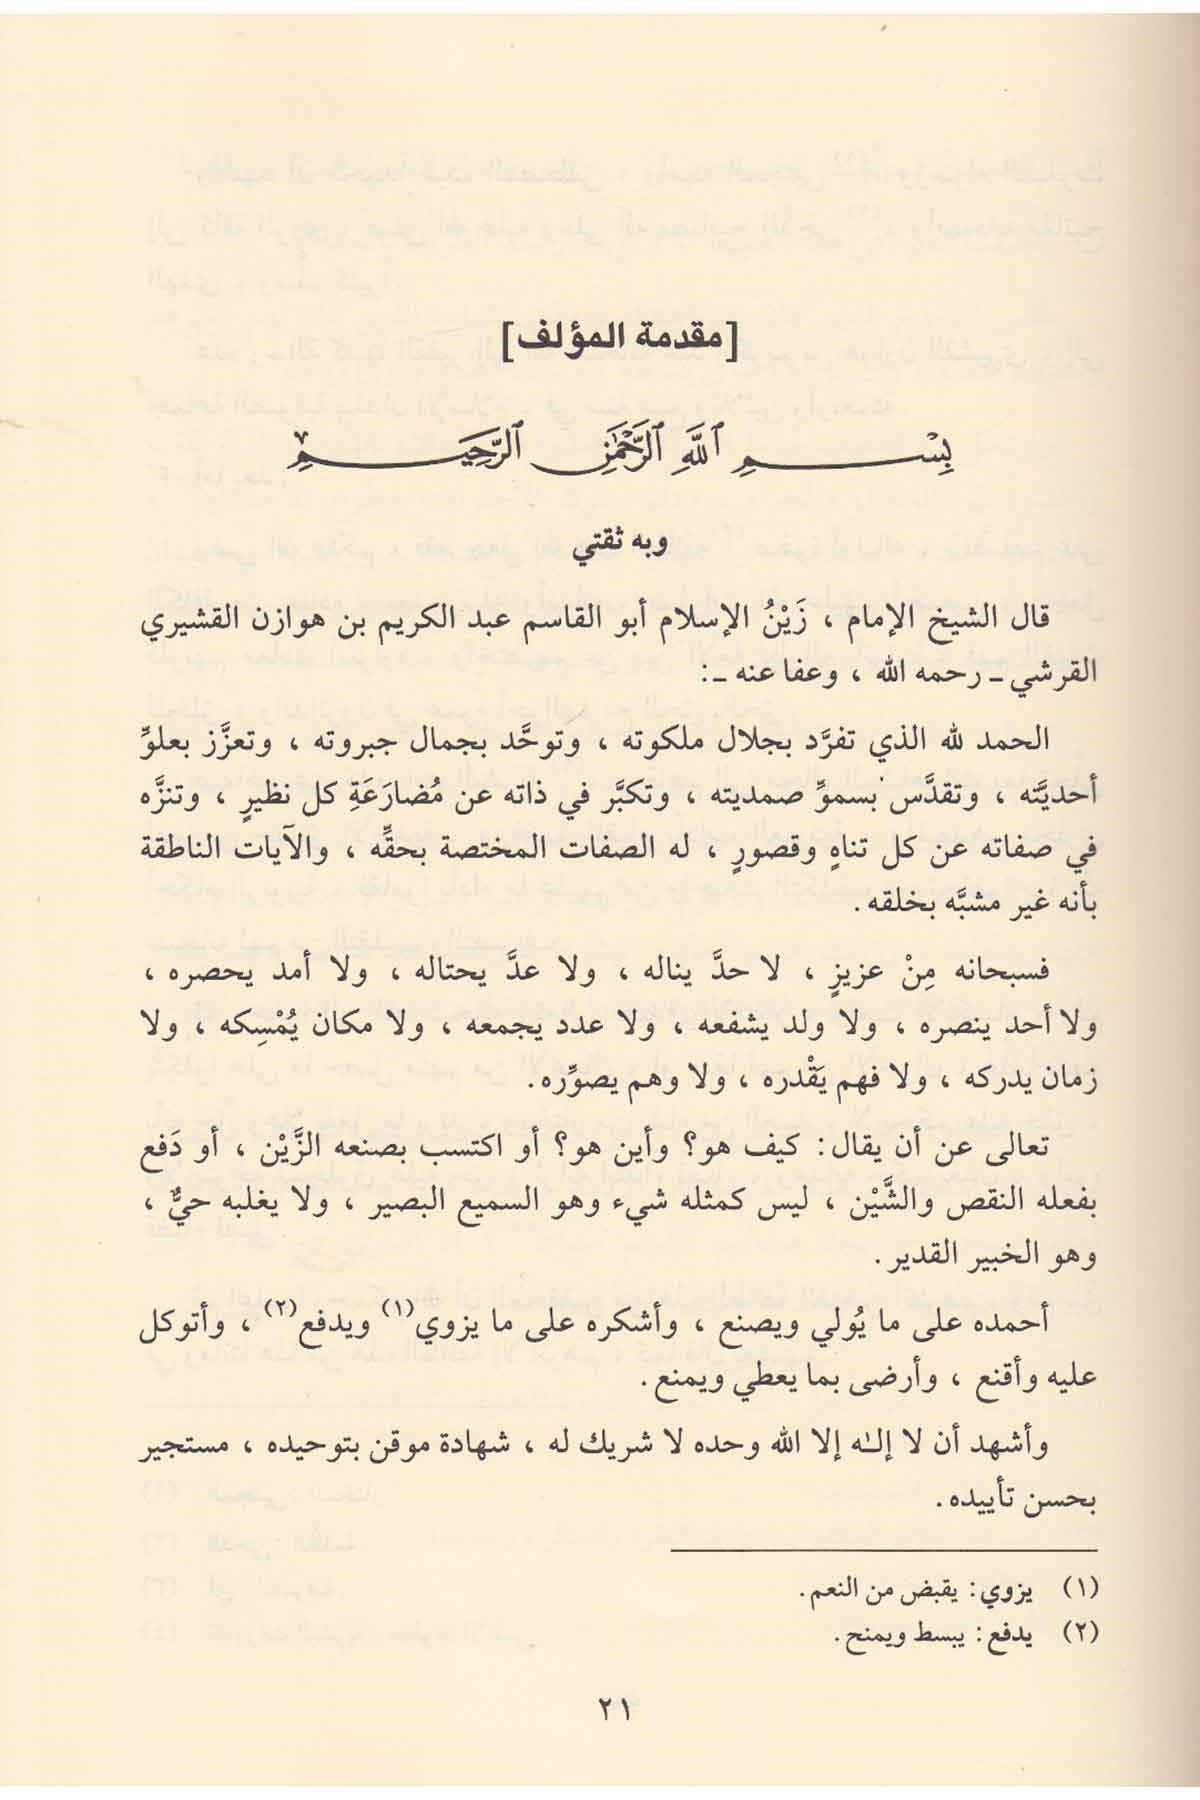 [مقدمة المؤلف]
بِسْمِ ٱللَّهِ ٱلرَّحْمَٰنِ ٱلرَّحِيمِ
وبه ثقتي
قال الشيخ الإمام ، زَيْنُ الإسلام أبو القاسم عبد الكريم بن هوازن القشيري
القرشي ـ رحمه الله ، وعفا عنه ـ :
الحمد لله الذي تفرَّد بجلال ملكوته ، وتوحَّد بجمال جبروته ، وتعزَّز بعلوِّ
أحديَّته ، وتقدَّس بسموِّ صمديته ، وتكبَّر في ذاته عن مُضارَعَةِ كل نظيرٍ ، وتنزَّه
في صفاته عن كل تناهٍ وقصورٍ ، له الصفات المختصة بحقِّه ، والآيات الناطقة
بأنه غير مشبَّه بخلقه .
فسبحانه مِنْ عزيزٍ ، لا حدَّ يناله ، ولا عدَّ يحتاله ، ولا أمد يحصره ،
ولا أحد ينصره ، ولا ولد يشفعه ، ولا عدد يجمعه ، ولا مكان يُمْسِكه ، ولا
زمان يدركه ، ولا فهم يَقْدره ، ولا وهم يصوِّره .
تعالى عن أن يقال : كيف هو؟ وأين هو؟ أو اكتسب بصنعه الزَّيْن ، أو دَفع
بفعله النقص والشَّيْن ، ليس كمثله شيء وهو السميع البصير ، ولا يغلبه حيٌّ ،
وهو الخبير القدير .
أحمده على ما يُولي ويصنع ، وأشكره على ما يزوي(١) ويدفع(٢) ، وأتوكل
عليه وأقنع ، وأرضى بما يعطي ويمنع .
وأشهد أن لا إلـٰه إلا الله وحده لا شريك له ، شهادة موقن بتوحيده ، مستجير
بحسن تأييده .
(١) يزوي : يقبض من النعم .
(٢) يدفع : يبسط ويمنح .
٢١